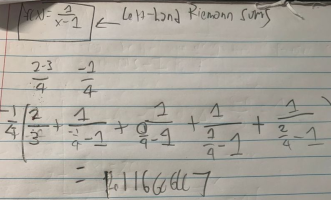 f(x) = 1/(x-1) ← Left-hand Riemann sums
(2-3)/4 -1/4
-1/4 ( 2/-3 + 1/(-1/4 -1) + 1/(0/4 -1) + 1/(1/4 -1) + 1/(2/4 -1)
=